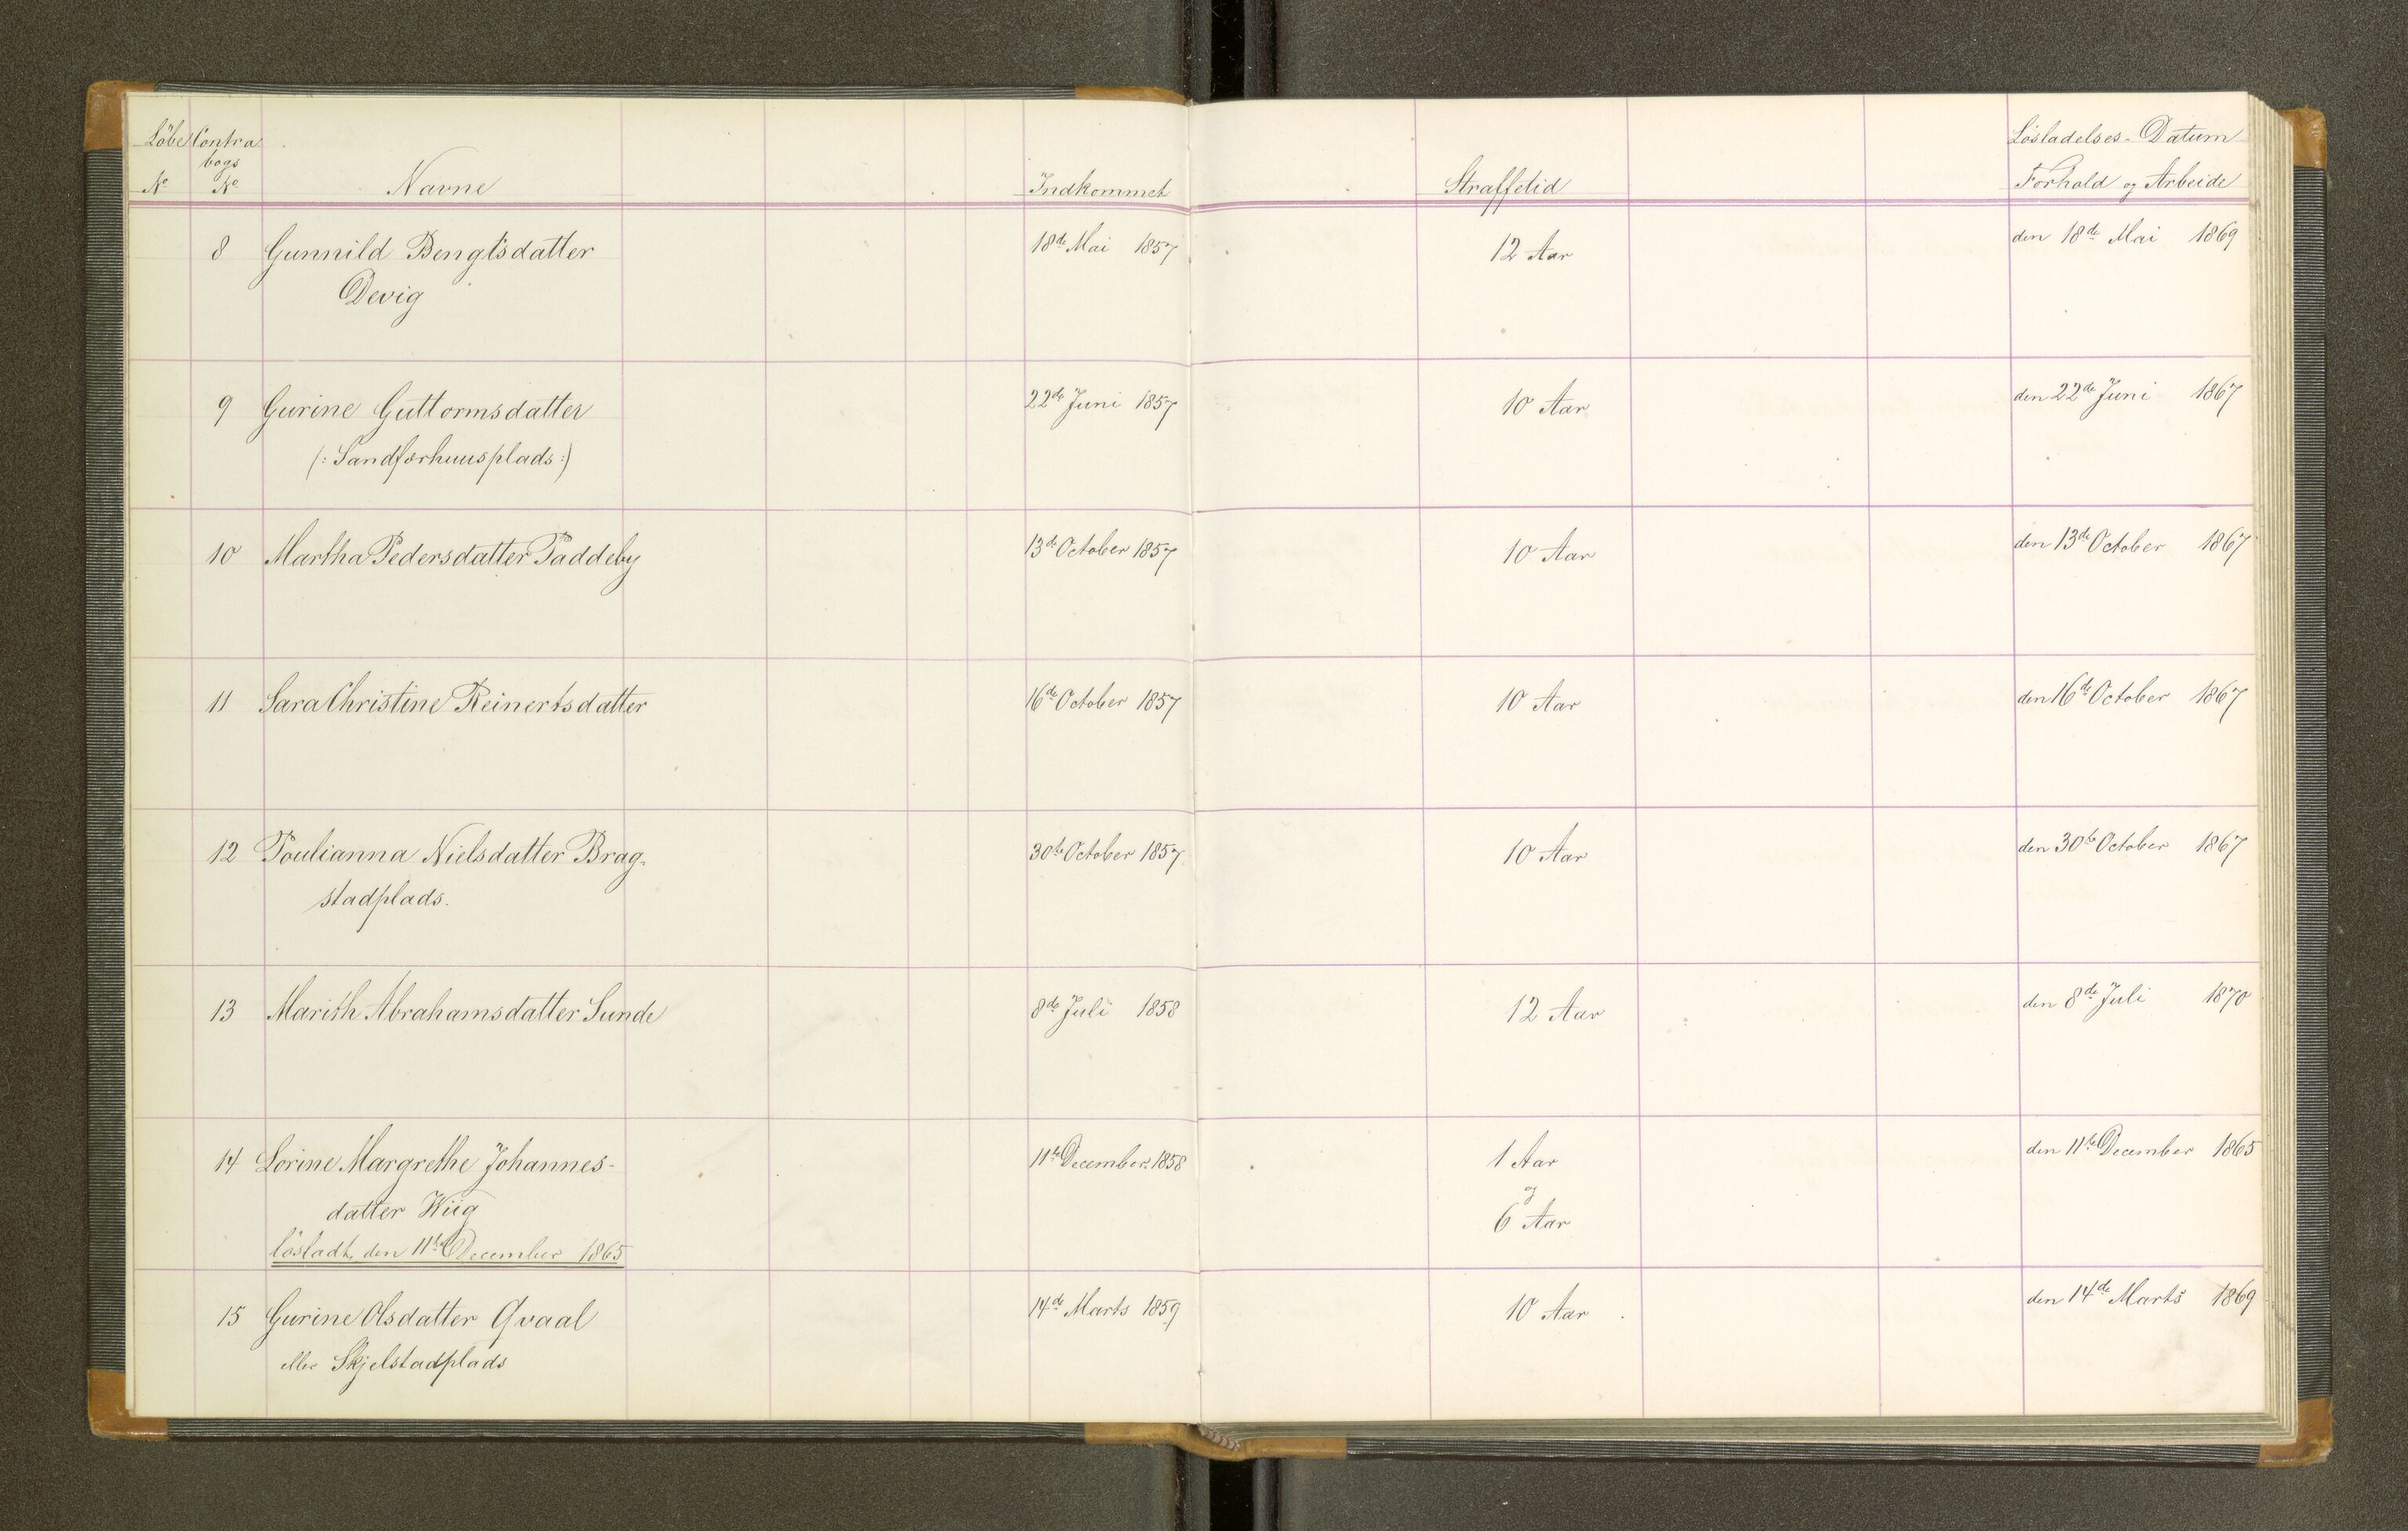 Löbe Contra Lösladelses-Datum
bogs
No No Navne Indkommet Straffetid Forhold og Arbeide
8 Gunnild Bengtsdatter 18de Mai 1857 12 Aar den 18de Mai 1869
Devig
9 Gurine Guttormsdatter 22de Juni 1857 10 Aar den 22de Juni 1867
(: Sandforhuusplads :)
10 Martha Pedersdatter Paddeby 13de October 1857 10 Aar den 13de October 1867
11 Sara Christine Reinertsdatter 16de October 1857 10 Aar den 16de October 1867
12 Poulianna Nielsdatter Brag- 30te October 1857 10 Aar den 30te October 1867
stadplads.
13 Marith Abrahamsdatter Sunde 8de Juli 1858 12 Aar den 8de Juli 1870
14 Lorine Margrethe Johannes- 11te December 1858 1 Aar den 11te December 1865
og
datter Wiig 6 Aar
lösladt den 11te December 1865
15 Gurine Olsdatter Qvaal 14de Marts 1859 10 Aar den 14de Marts 1869
eller Skjelstadplads